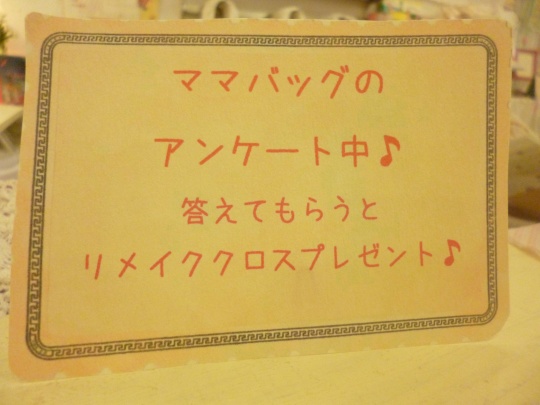 ママバッグの
アンケート中♪
答えてもらうと
リメイククロスプレゼント♪